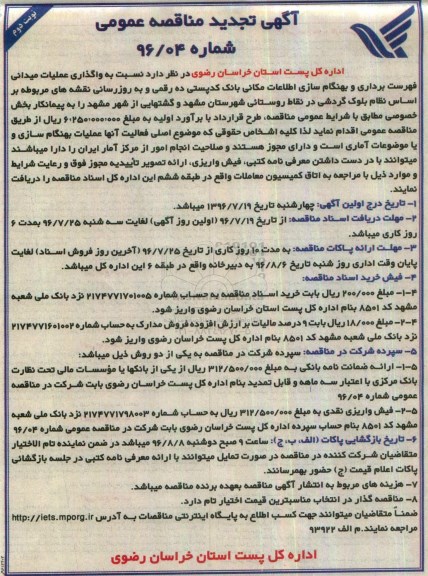 نوبت دوم
آگهی تجدید مناقصه عمومی
شماره ۹۶/۰۴
اداره کل پست استان خراسان رضوی در نظر دارد نسبت به واگذاری عملیات میدانی
فهرست برداری و بهنگام سازی اطلاعات مکانی بانک کدپستی ده رقمی و به روزرسانی نقشه های مربوطه بر
اساس نظام بلوک گردشی در نقاط روستائی شهرستان مشهد و گشتهایی از شهر مشهد را به پیمانکار بخش
خصوصی مطابق با شرایط عمومی مناقصه، طرح قرارداد با برآورد اولیه به مبلغ ۶/۲۵۰/۰۰۰/۰۰۰ ریال از طریق
مناقصه عمومی اقدام نماید لذا کلیه اشخاص حقوقی که موضوع اصلی فعالیت آنها عملیات بهنگام سازی و
یا موضوعات آماری است و دارای مجوز هستند و صلاحیت انجام امور از مرکز آمار ایران را دارا میباشند
میتوانند با در دست داشتن معرفی نامه کتبی، فیش واریزی، ارائه تصویر تأییدیه مجوز فوق و رعایت شرایط
و موارد ذیل با مراجعه به اتاق کمیسیون معاملات واقع در طبقه ششم این اداره کل اسناد مناقصه را دریافت
نمایند.
۱- تاریخ درج اولین آگهی: چهارشنبه تاریخ ۱۳۹۶/۷/۱۹ میباشد.
۲- مهلت دریافت اسناد مناقصه: از تاریخ ۹۶/۷/۱۹ (اولین روز آگهی) لغایت سه شنبه ۹۶/۷/۲۵ بمدت ۶
روز کاری میباشد.
۳- مهلت ارائه پاکات مناقصه: به مدت ۱۰ روز کاری از تاریخ ۹۶/۷/۲۵ (آخرین روز فروش اسناد) لغایت
پایان وقت اداری روز شنبه تاریخ ۹۶/۸/۶ به دبیرخانه واقع در طبقه ۶ این اداره کل میباشد.
۴- فیش خرید اسناد مناقصه:
۴-۱- مبلغ ۲۰۰/۰۰۰ ریال بابت خرید اسناد مناقصه به حساب شماره ۲۱۷۴۷۷۱۷۰۱۰۰۵ نزد بانک ملی شعبه
مشهد کد ۸۵۰۱ بنام اداره کل پست استان خراسان رضوی واریز شود.
۴-۲- مبلغ ۱۸/۰۰۰ ریال بابت ۹ درصد مالیات بر ارزش افزوده فروش مدارک به حساب شماره ۲۱۷۴۷۷۱۶۰۱۰۰۲
نزد بانک ملی شعبه مشهد کد ۸۵۰۱ بنام اداره کل پست خراسان رضوی واریز شود.
۵- سپرده شرکت در مناقصه: سپرده شرکت در مناقصه به یکی از دو روش ذیل میباشد:
۵-۱- ارائه ضمانت نامه بانکی به مبلغ ۳۱۲/۵۰۰/۰۰۰ ریال از یکی از بانکها یا مؤسسات مالی تحت نظارت
بانک مرکزی با اعتبار سه ماهه و قابل تمدید بنام اداره کل پست خراسان رضوی بابت شرکت در مناقصه
عمومی شماره ۹۶/۰۴
۵-۲- فیش واریزی نقدی به مبلغ ۳۱۲/۵۰۰/۰۰۰ ریال به حساب شماره ۲۱۷۴۷۷۱۷۹۸۰۰۳ نزد بانک ملی شعبه
مشهد کد ۸۵۰۱ بنام حساب سپرده اداره کل پست خراسان رضوی بابت شرکت در مناقصه عمومی شماره ۹۶/۰۴
۶- تاریخ بازگشایی پاکات (الف، ب، ج): ساعت ۹ صبح دوشنبه ۹۶/۸/۸ میباشد در ضمن نماینده تام الاختیار
متقاضیان شرکت کننده در مناقصه در صورت تمایل میتوانند با ارائه معرفی نامه کتبی در جلسه بازگشائی
پاکات اعلام قیمت (ج) حضور بهمرسانند.
۷- هزینه های مربوط به انتشار آگهی مناقصه بعهده برنده مناقصه میباشد.
۸- مناقصه گذار در انتخاب مناسبترین قیمت اختیار تام دارد.
ضمناً متقاضیان میتوانند جهت کسب اطلاع به پایگاه اینترنتی مناقصات به آدرس http://iets.mporg.ir
مراجعه نمایند. م الف ۹۳۹۲۲
اداره کل پست استان خراسان رضوی